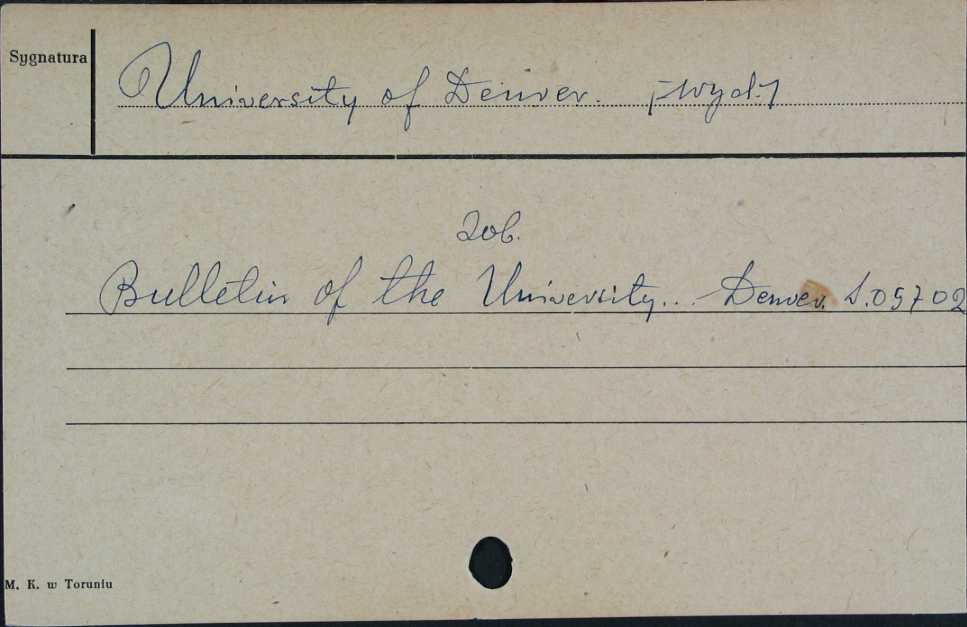 Sygnatura
University of Denver. [wyd.]
Zob.
Bulletin of the University... Denver. S.05702
M. K. w Toruniu